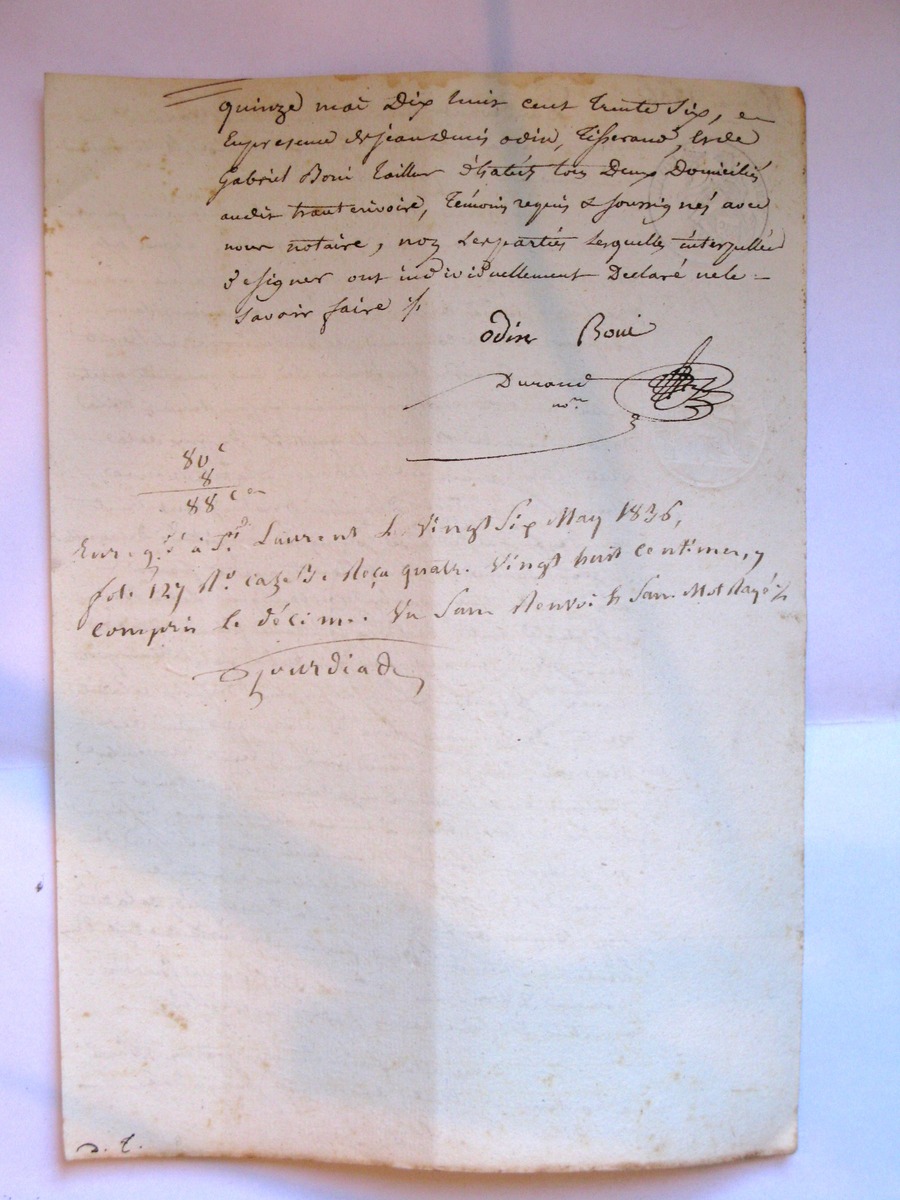 quinze mai Dix huit cent trente Six, en
Enpresence dejeandenis odin, Tisserand, et de
Gabriel Boni tailleur d'habits tous Deux Domiciliés
audit, témoins requis & soussignés avec
nous notaire, non Lesparties Lesquelles interpellées
designer ont individuellement Declaré nele
Savoir faire
odin Boni
Durand
nore
80 c
8
88 c en
Enregt. à St. Laurent le vingt Six May 1836,
fol. 127 Ro. caze Reçu quatre vingt huit centimes, y
compris le décime. Vu Sans Renvoi & Sans Mot Rayé